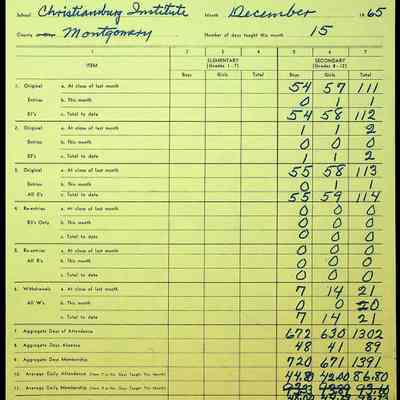 School Christiansburg Institute Month December 1965
County Montgomery Number of days taught this month 15
1 2 3 4 5 6 7
ITEM ELEMENTARY (Grades 1 - 7) SECONDARY (Grades 8 - 12)
Boys Girls Total Boys Girls Total
1. Original a. At close of last month 54 57 111
Entries b. This month 0 1 1
E1's c. Total to date 54 58 112
2. Original a. At close of last month 1 1 2
Entries b. This month 0 0 0
E2's c. Total to date 1 1 2
3. Original a. At close of last month 55 58 113
Entries b. This month 0 1 1
All E's c. Total to date 55 59 114
4. Re-entries a. At close of last month 0 0 0
b. This month 0 0 0
c. Total to date 0 0 0
5. Re-entries a. At close of last month 0 0 0
All R's b. This month 0 0 0
c. Total to date 0 0 0
6. Withdrawals a. At close of last month 7 14 21
All W's b. This month 0 0 0
c. Total to date 7 14 21
7. Aggregate Days of Attendance 672 630 1302
8. Aggregate Days Absence 48 41 89
9. Aggregate Days Membership 720 671 1391
10. Average Daily Attendance 44.80 42.00 86.80
11. Average Daily Membership